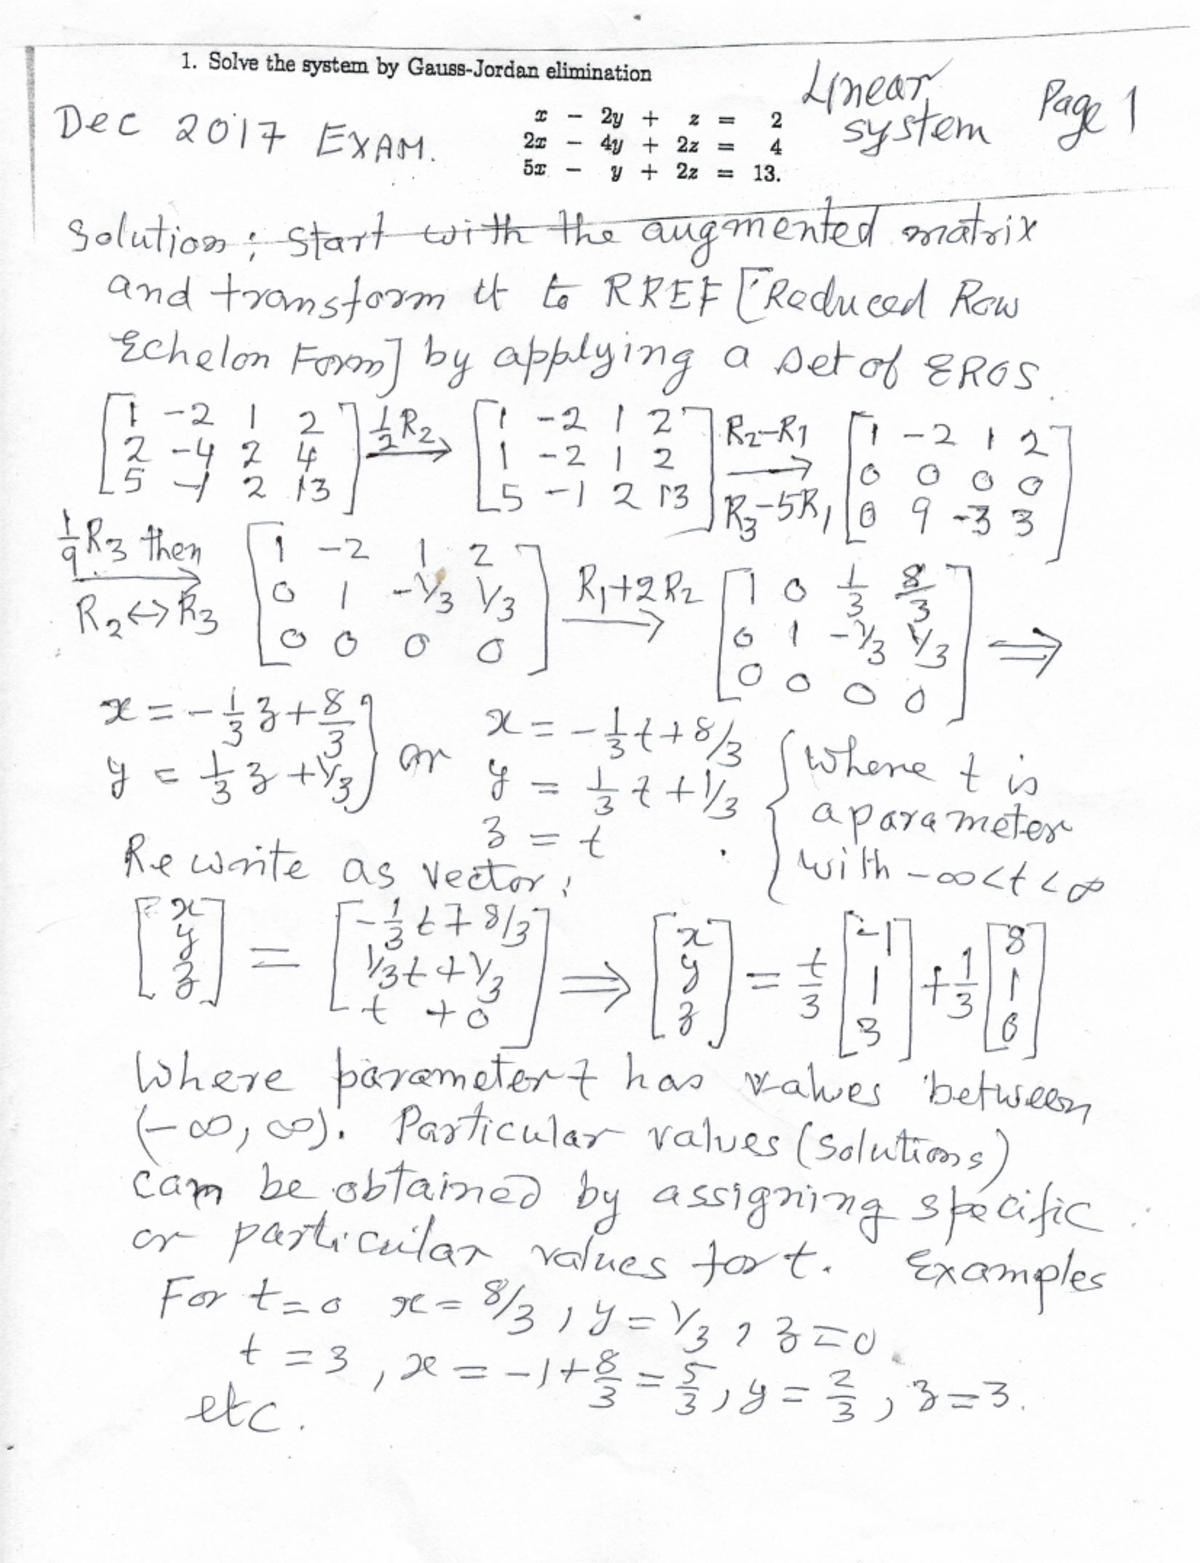 1. Solve the system by Gauss-Jordan elimination
x − 2y + z = 2
2x − 4y + 2z = 4
5x − y + 2z = 13.
Linear system Page 1
Dec 2017 EXAM.
Solution; Start with the augmented matrix
and transform it to RREF [Reduced Row
Echelon Form] by applying a set of EROS.
[1 -2 1 2; 2 -4 2 4; 5 -1 2 13] ½R2 → [1 -2 1 2; 1 -2 1 2; 5 -1 2 13] R2-R1 → R3-5R1 [1 -2 1 2; 0 0 0 0; 0 9 -3 3]
1/9 R3 then → R2↔R3 [1 -2 1 2; 0 1 -1/3 1/3; 0 0 0 0] R1+2R2 → [1 0 1/3 8/3; 0 1 -1/3 1/3; 0 0 0 0] ⇒
x = -1/3 z + 8/3
y = 1/3 z + 1/3
or
x = -1/3 t + 8/3
y = 1/3 t + 1/3
z = t
{where t is
a parameter
with -∞<t<∞
Rewrite as vector;
[x; y; z] = [-1/3 t + 8/3; 1/3 t + 1/3; t + 0] ⇒ [x; y; z] = t/3 [-1; 1; 3] + 1/3 [8; 1; 0]
Where parameter t has values between
(-∞, ∞). Particular values (solutions)
can be obtained by assigning specific
or particular values for t. Examples
For t=0 x = 8/3, y = 1/3, z=0.
t = 3, x = -1+8/3 = 5/3, y = 2/3, z=3.
etc.